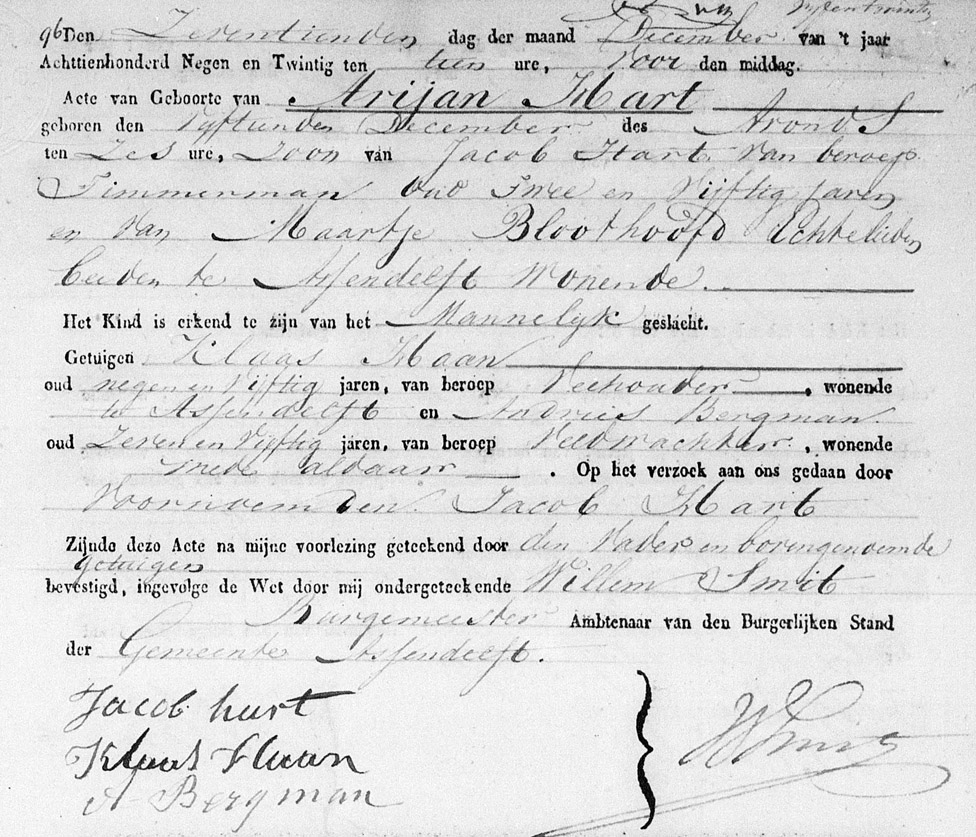 96 Den Zeventienden dag der maand December van 't jaar
Achttienhonderd Negen en Twintig ten tien ure, Voor den middag.
Acte van Geboorte van Arijan Hart
geboren den Vyftienden December des Avonds
ten Zes ure, Zoon van Jacob Hart Van beroep
Timmerman Oud Twee en Vijftig jaren
en Van Maartje Bloothoofd Echtelieden
beiden te Assendelft Wonende.
Het Kind is erkend te zijn van het Mannelyk geslacht.
Getuigen Klaas Haan
oud negen en Vijftig jaren, van beroep Veehouder, wonende
te Assendelft en Andries Bergman
oud Zeven en Vijftig jaren, van beroep Veldwachter, wonende
mede aldaar. Op het verzoek aan ons gedaan door
Voornoemden Jacob Hart
Zijnde deze Acte na mijne voorlezing geteekend door den Vader en bovengenoemde
getuigen
bevestigd, ingevolge de Wet door mij ondergeteekende Willem Smit
Burgemeester Ambtenaar van den Burgerlijken Stand
der Gemeente Assendelft.
Jacob hart
Klaas Haan
A Bergman
W Smit